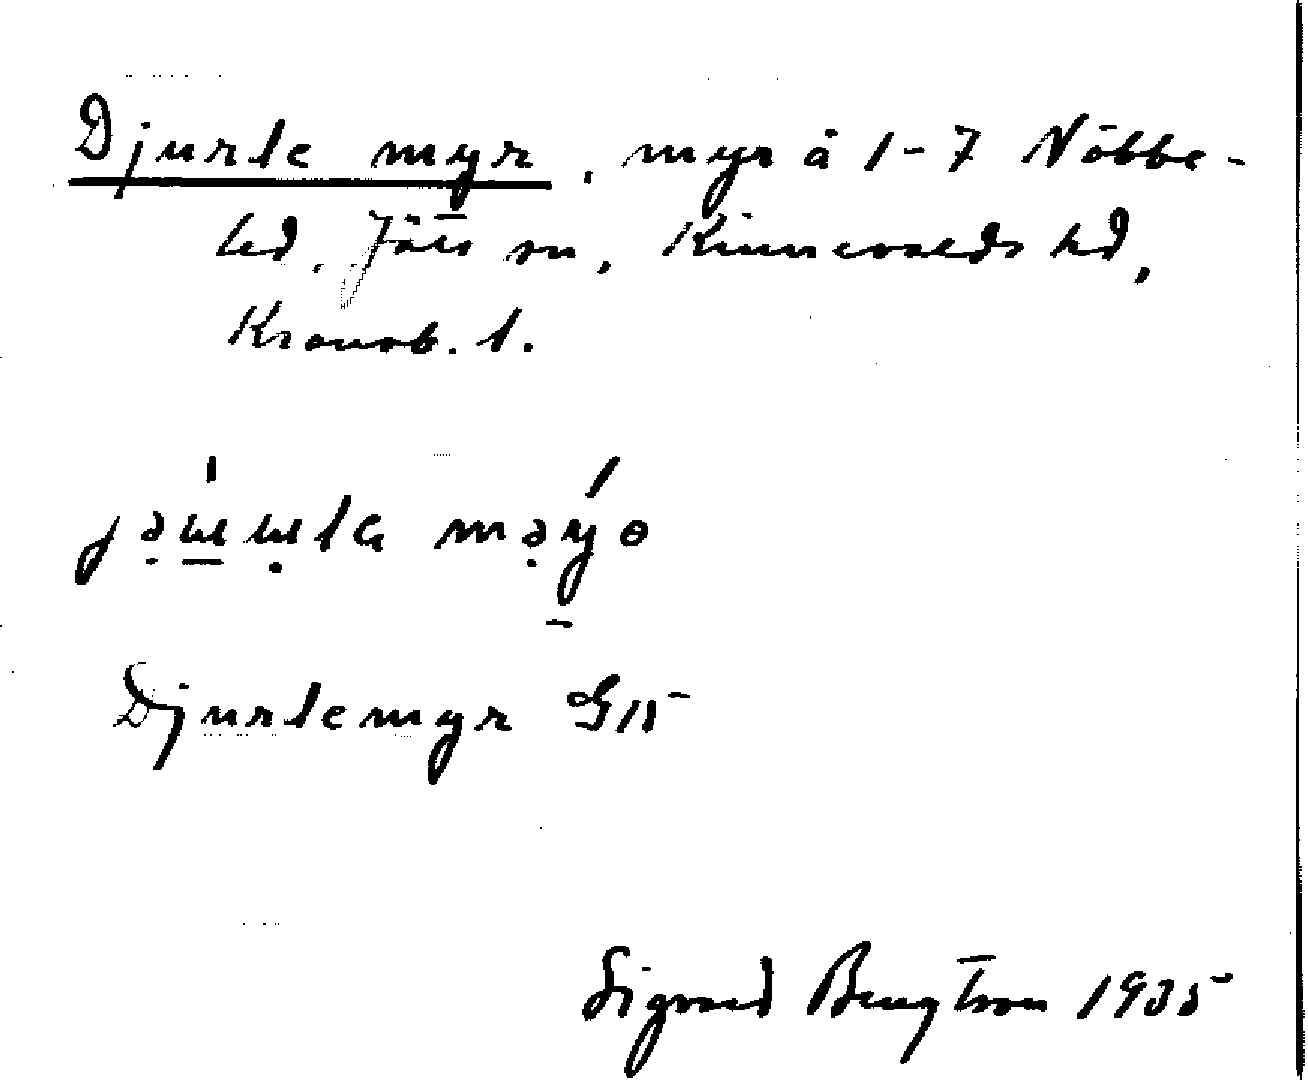 Djurle myr, myr å 1-7 Nöbbe-
led, Jäts sn, Kinnevalds hd,
Kronob. l.
Djurlemyr G15
Sigvard Bengtson 1935